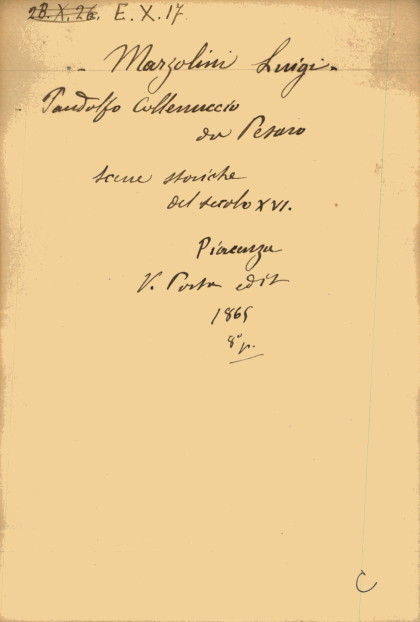 28.X.26. E.X.17
Marzolini Luigi.
Pandolfo Collenuccio
da Pesaro
scene storiche
del secolo XVI.
Piacenza
V. Porta edit
1865
8º p.
C